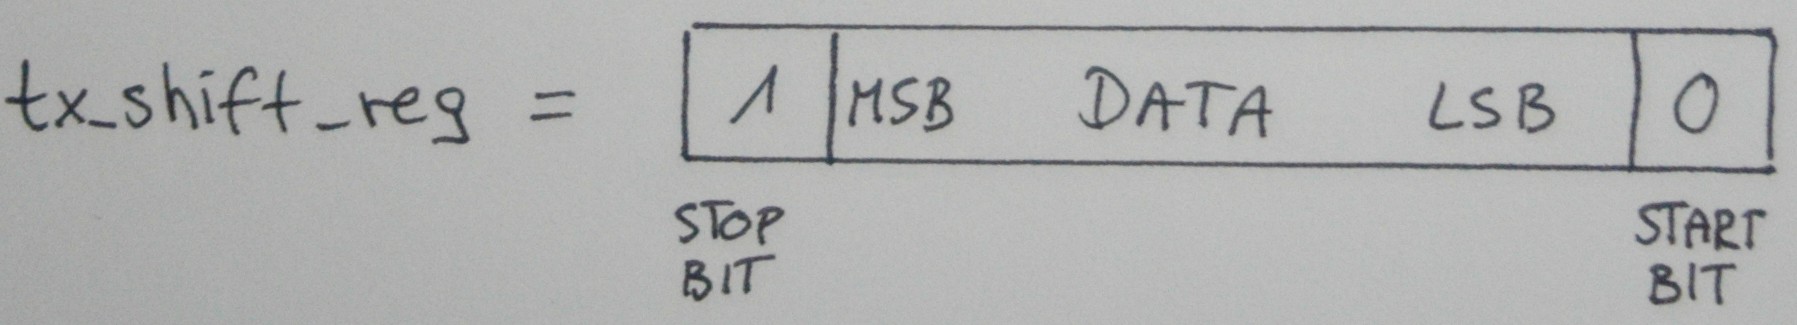 tx_shift_reg = 1 MSB DATA LSB 0
STOP START
BIT BIT